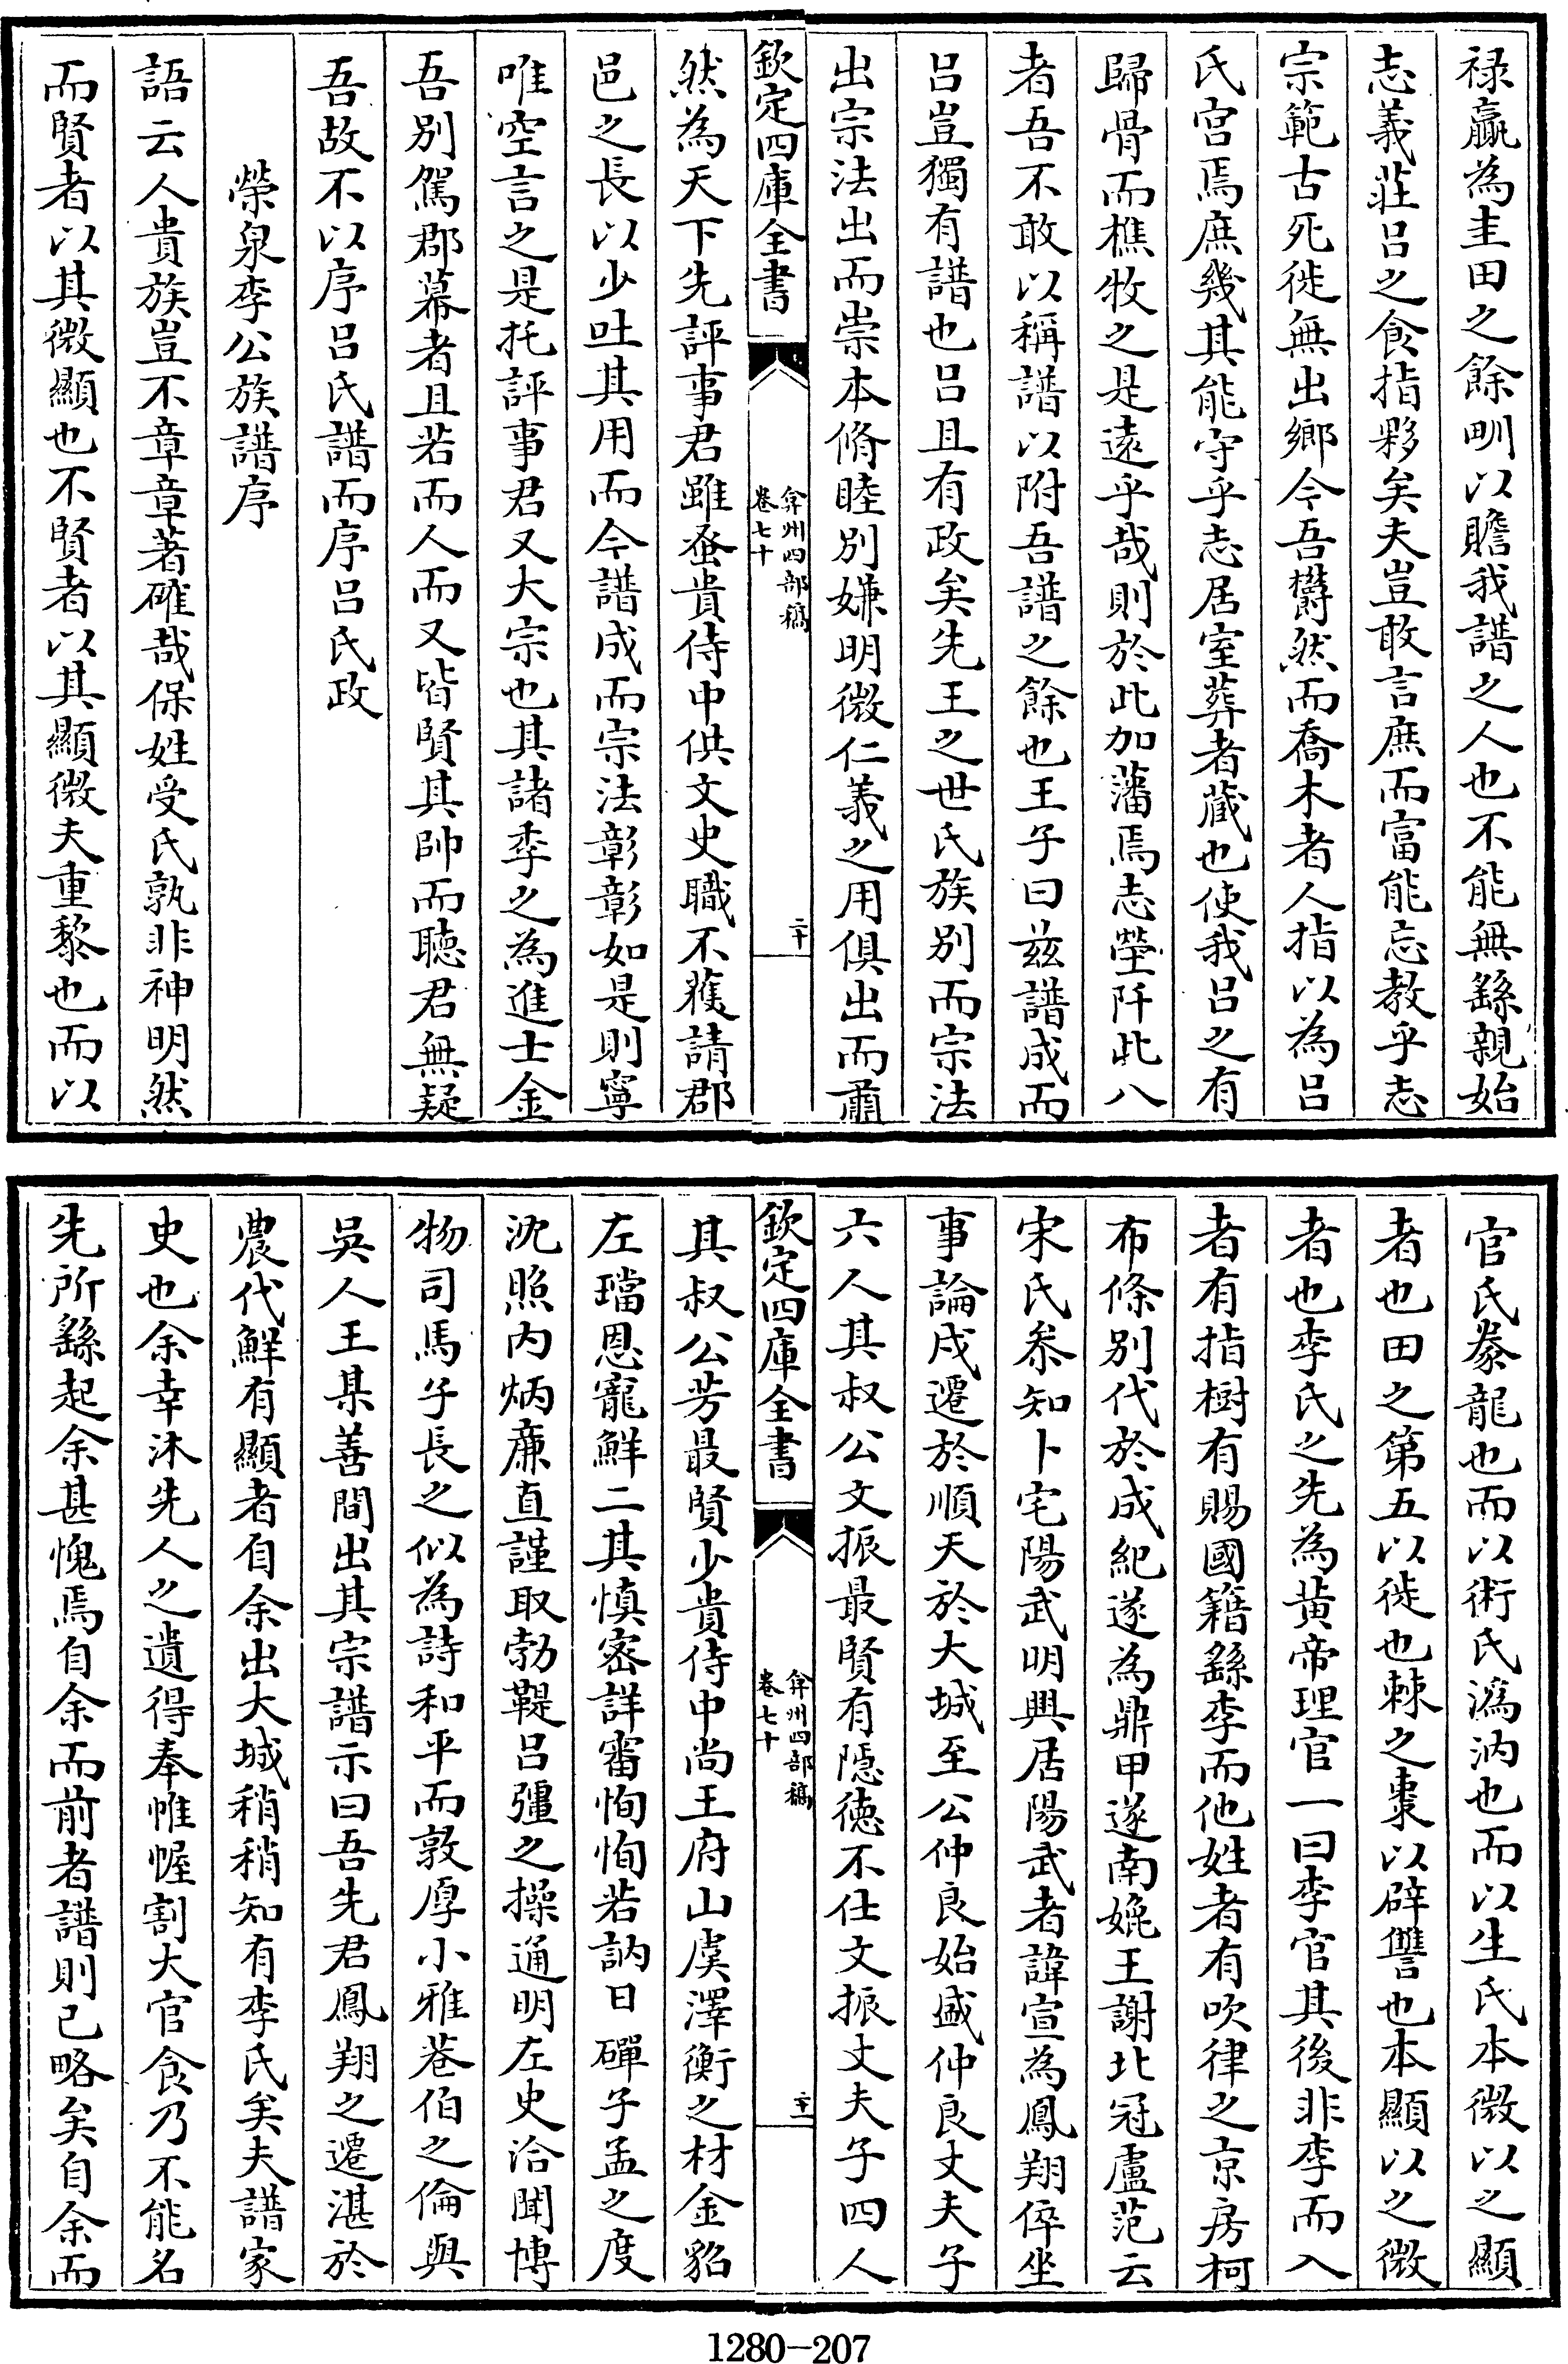 祿羸為圭田之餘畎以贍我譜之人也不能無繇親始
志義莊吕之食指夥矣夫豈敢言庶而富能忘教乎志
宗範古死徙無出鄉今吾欝然而喬木者人指以為吕
氏宫焉庶幾其能守乎志居室葬者藏也使我吕之有
歸骨而樵牧之是逺乎哉則於此加藩焉志塋阡此八
者吾不敢以稱譜以附吾譜之餘也王子曰兹譜成而
吕豈獨有譜也吕且有政矣先王之世氏族别而宗法
出宗法出而崇本脩睦别嫌明微仁義之用俱出而肅
欽定四庫全書
弇州四部稿
卷七十
二十
然為天下先評事君雖蚤貴侍中供文史職不獲請郡
邑之長以少吐其用而今譜成而宗法彰彰如是則寧
唯空言之是托評事君又大宗也其諸季之為進士金
吾别駕郡幕者且若而人而又皆賢其帥而聽君無疑
吾故不以序吕氏譜而序吕氏政
榮泉李公族譜序
語云人貴族豈不章章著碓哉保姓受氏孰非神明然
而賢者以其微顯也不賢者以其顯微夫重黎也而以
官氏豢龍也而以術氏潙汭也而以生氏本微以之顯
者也田之第五以徙也棘之棗以辟讐也本顯以之微
者也李氏之先為黄帝理官一曰李官其後非李而入
者有指樹有賜國籍繇李而他姓者有吹律之京房柯
布條别代於成紀遂為鼎甲遂南娩王謝北冠盧范云
宋氏叅知卜宅陽武明興居陽武者諱宣為鳳翔倅坐
事論戍遷於順天於大城至公仲良始盛仲良丈夫子
六人其叔公文振最賢有隠徳不仕文振丈夫子四人
欽定四庫全書
弇州四部稿
卷七十
二十一
其叔公芳最賢少貴侍中尚王府山虞澤衡之材金貂
左璫恩寵鮮二其慎宻詳審恂恂若訥日磾子孟之度
沈照内炳亷直謹取勃鞮吕彊之操通明左史洽聞博
物司馬子長之似為詩和平而敦厚小雅巷伯之倫與
吳人王某善間出其宗譜示曰吾先君鳳翔之遷湛於
農代鮮有顯者自余出大城稍稍知有李氏矣夫譜家
史也余幸沐先人之遺得奉帷幄割大官食乃不能名
先所繇起余甚愧焉自余而前者譜則已略矣自余而
1280-207